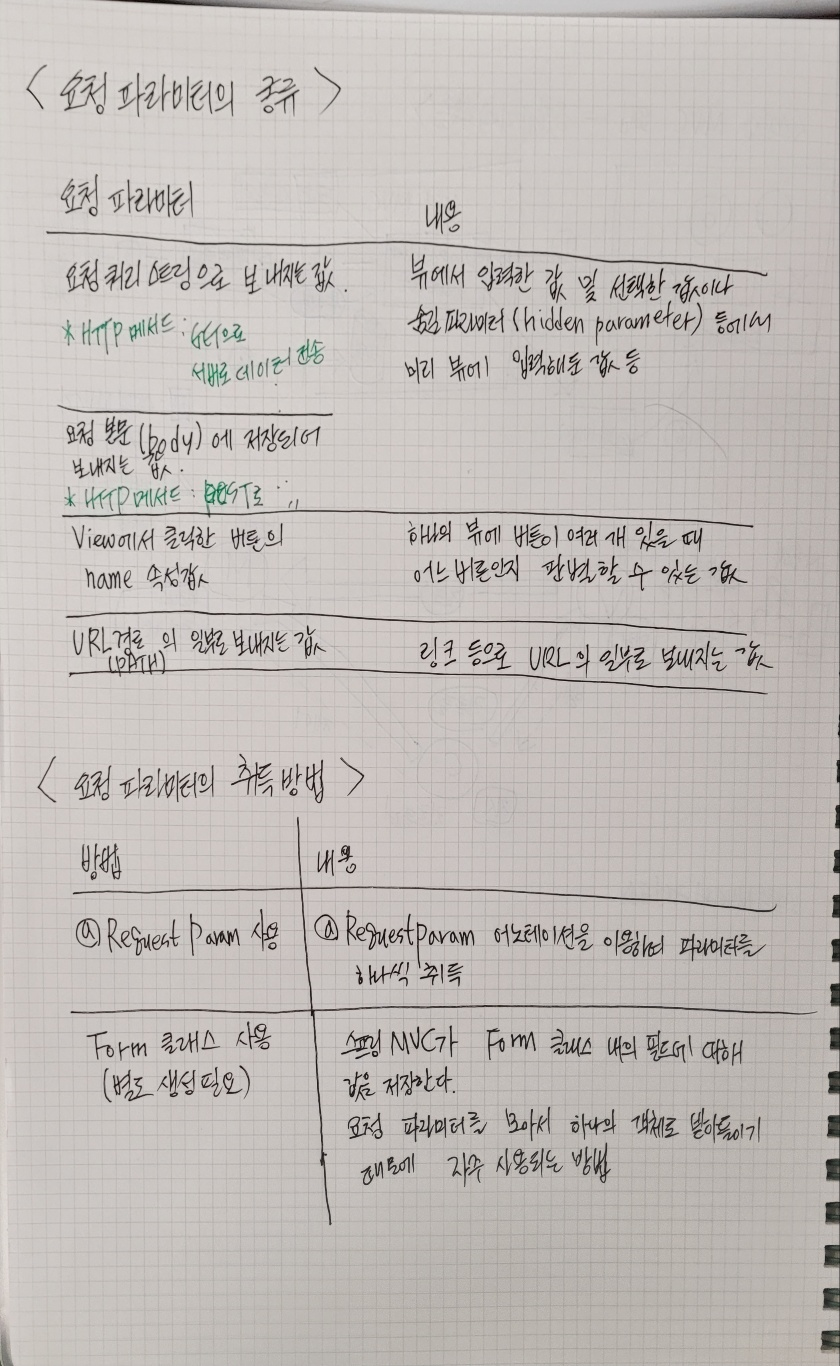 < 요청 파라미터의 종류 >
요청 파라미터
내용
요청 쿼리 스트링으로 보내지는 값.
* HTTP 메서드 : GET으로
서버로 데이터 전송
뷰에서 입력한 값 및 선택한 값이나
숨김 파라미터 (hidden parameter) 등에서
미리 뷰에 입력해둔 값 등
요청 본문 (body) 에 저장되어
보내지는 값.
* HTTP 메서드 : POST로 〃
View에서 클릭한 버튼의
name 속성값
하나의 뷰에 버튼이 여러 개 있을 때
어느 버튼인지 판별할 수 있는 값
URL 경로의 일부로 보내지는 값
(PATH)
링크 등으로 URL의 일부로 보내지는 값
< 요청 파라미터의 취득 방법 >
방법
내용
@Request Param 사용
@RequestParam 어노테이션을 이용하여 파라미터를
하나씩 취득
Form 클래스 사용
(별도 생성 필요)
스프링 MVC가 Form 클래스 내의 필드에 대해
값을 저장한다.
요청 파라미터를 모아서 하나의 객체로 받아들이기
때문에 자주 사용되는 방법